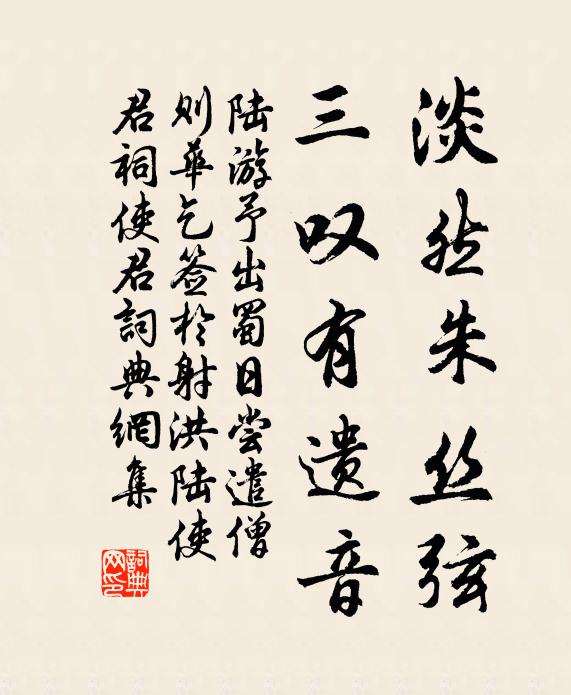 淡然朱丝弦
三叹有遗音
陆游予出蜀日尝遣僧
则华乞签於射洪陆使
君祠使君詞典網集
詞典网印